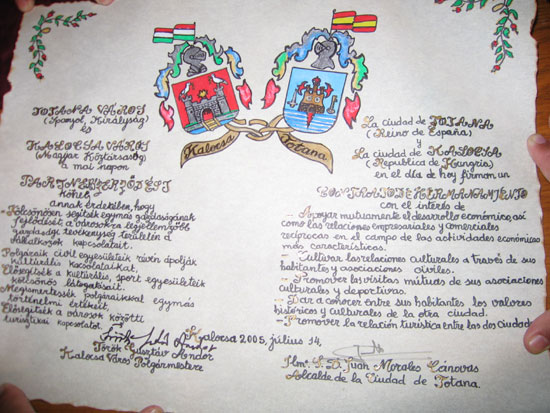 Kalocsa Totana
TOTANA VÁROS
(Spanyol Királyság)
és
KALOCSA VÁROS
(Magyar Köztársaság)
a mai napon
PARTNERSZERZŐDÉST
kötnek
annak érdekében, hogy
Kölcsönösen segítsék egymás gazdaságának
fejlődését, a városokra legjellemzőbb
gazdasági tevékenység területén a
vállalkozók kapcsolatait.
Polgáraik civil egyesületeik révén ápolják
kulturális kapcsolataikat.
Elősegítsék a kulturális, sport egyesületeik
kölcsönös látogatásait.
Megismertessék polgáraikkal egymás
történelmi értékeit.
Elősegítsék a városok közötti
turisztikai kapcsolatot.
La ciudad de TOTANA
(Reino de España)
y
La ciudad de KALOCSA
(República de Hungría)
en el día de hoy firman un
CONTRATO DE HERMANAMIENTO
con el interés de
- Apoyar mutuamente el desarrollo económico, así
como las relaciones empresariales y comerciales
recíprocas en el campo de las actividades económicas
más características.
- Cultivar las relaciones culturales a través de sus
habitantes y asociaciones civiles.
- Promover las visitas mutuas de sus asociaciones
culturales y deportivas.
- Dar a conocer entre sus habitantes los valores
históricos y culturales de la otra ciudad.
- Promover la relación turística entre las dos ciudades
Kalocsa 2005. július 14.
Török Gusztáv Andor
Kalocsa Város Polgármestere
Ilmo. S. D. Juan Morales Cánovas
Alcalde de la Ciudad de
Totana.